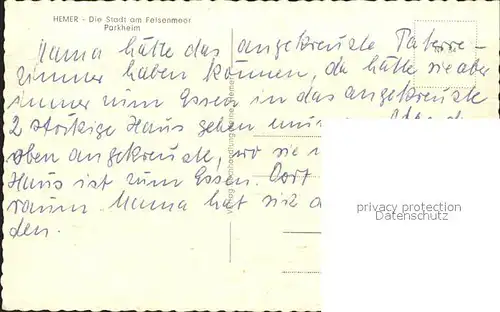 HEMER - Die Stadt am Felsenmeer
Parkheim
Mama hätte das angekreuzte Paterre-
zimmer haben können, da hätte sie aber
immer zum Essen in das angekreuzte
2 stöckige Haus gehen
oben angekreuzte, wo sie
Haus ist zum Essen. Dort
raum. Mama hat sich
den.
privacy protection
Datenschutz